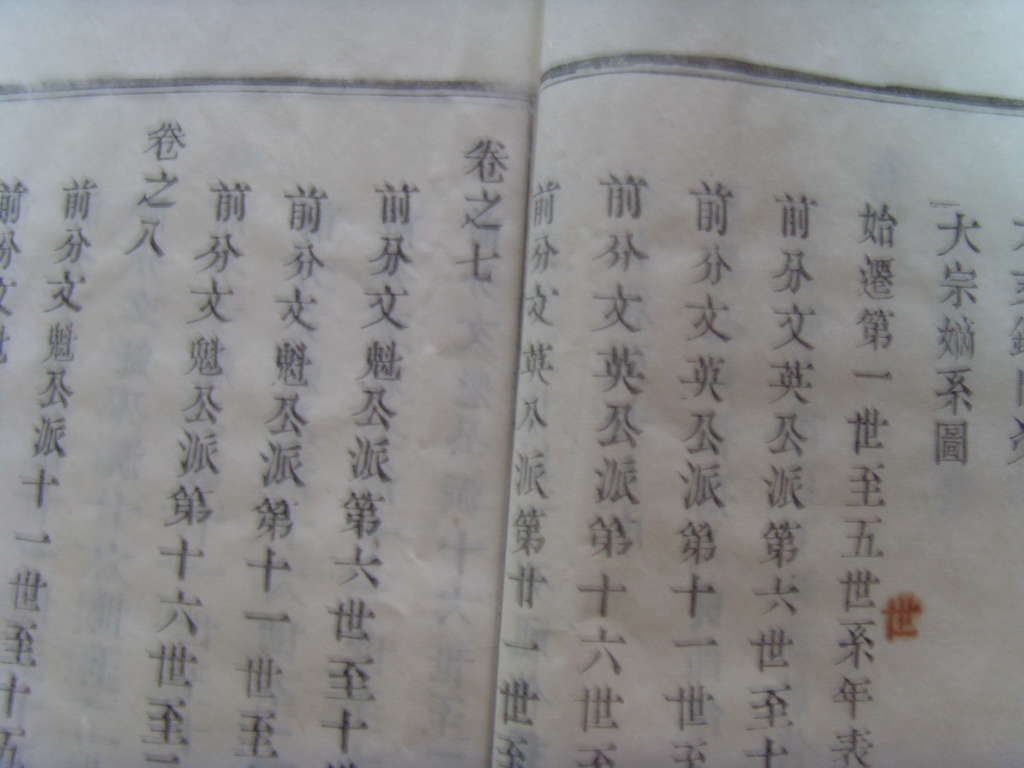 大宗嫡系圖
始遷第一世至五世系年表
世
前分文英公派第六世至十
前分文英公派第十一世至
前分文英公派第十六世至
前分文英公派第廿一世至
卷之七
前分文魁公派第六世至十
前分文魁公派第十一世至
前分文魁公派第十六世至
卷之八
前分文魁公派十一世至十五
前分文魁